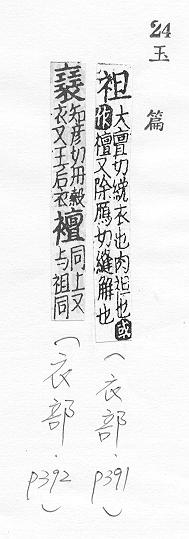 24
玉篇
袒大亶切衣也肉袒也或
作襢又除鴈切縫解也
(衣部·p391)
知彦切丹縠
衣又王后衣
襢同上又
与袒同
(衣部·p392)